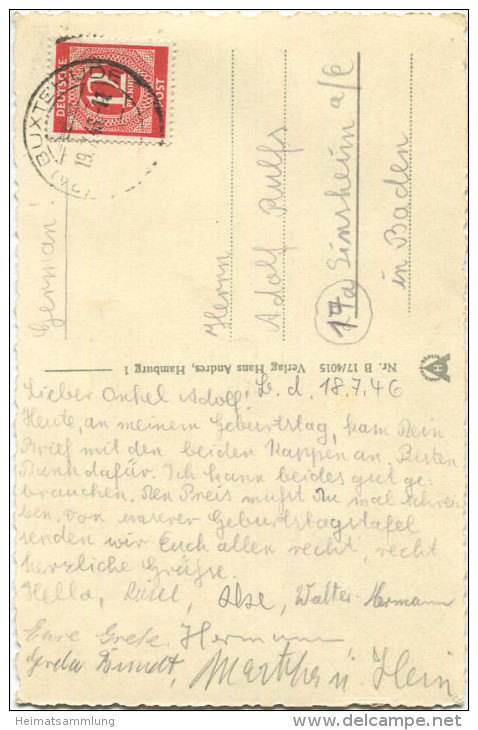 DEUTSCHE POST
12
PFENNIG
BUXTEHUDE
19. 7. 46
German!
Herrn
Adolf Rulfs
17a Sinsheim a/E
in Baden
Nr. B 17/4015 Verlag Hans Andres, Hamburg 1
Lieber Onkel Adolf! B. d. 18.7.46
Heute, an meinem Geburtstag, kam Dein
Brief mit den beiden Kappen an. Besten
Dank dafür. Ich kann beides gut ge-
brauchen. Den Preis mußt Du mal schrei-
ben. Von unserer Geburtstagstafel
senden wir Euch allen recht, recht
herzliche Grüße.
Hella, Rösel, Ilse, Walter-Hermann
Eure Grete. Hermann
Gerda Brundt, Martha u. Hein
Heimatsammlung
www.delcampe.net